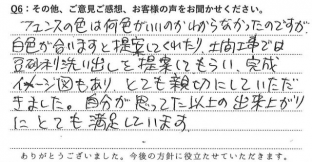 Q6：その他、ご意見ご感想、お客様の声をお聞かせください。
フェンスの色は何色がいいのかわからなかったのですが、
白色が合いますと提案してくれたり、土間工事では
豆砂利洗い出しを提案してもらい、完成
イメージ図もあり、とても親切にしていただ
きました。自分が思ってた以上の出来上がり
にとても満足しています。
ありがとうございました。今後の方針に役立たせていただきます。